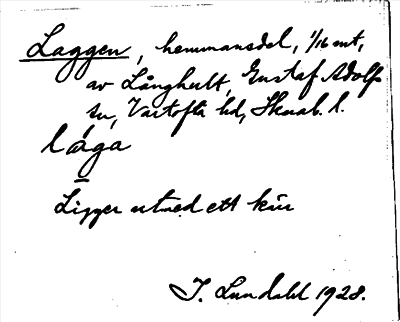 Laggen, hemmansdel, 1/16 mt,
av Långhult, Gustaf Adolfs
sn, Vartofta hd, Skarab. l.
låga
Ligger utmed ett kärr
J. Lundahl 1928.